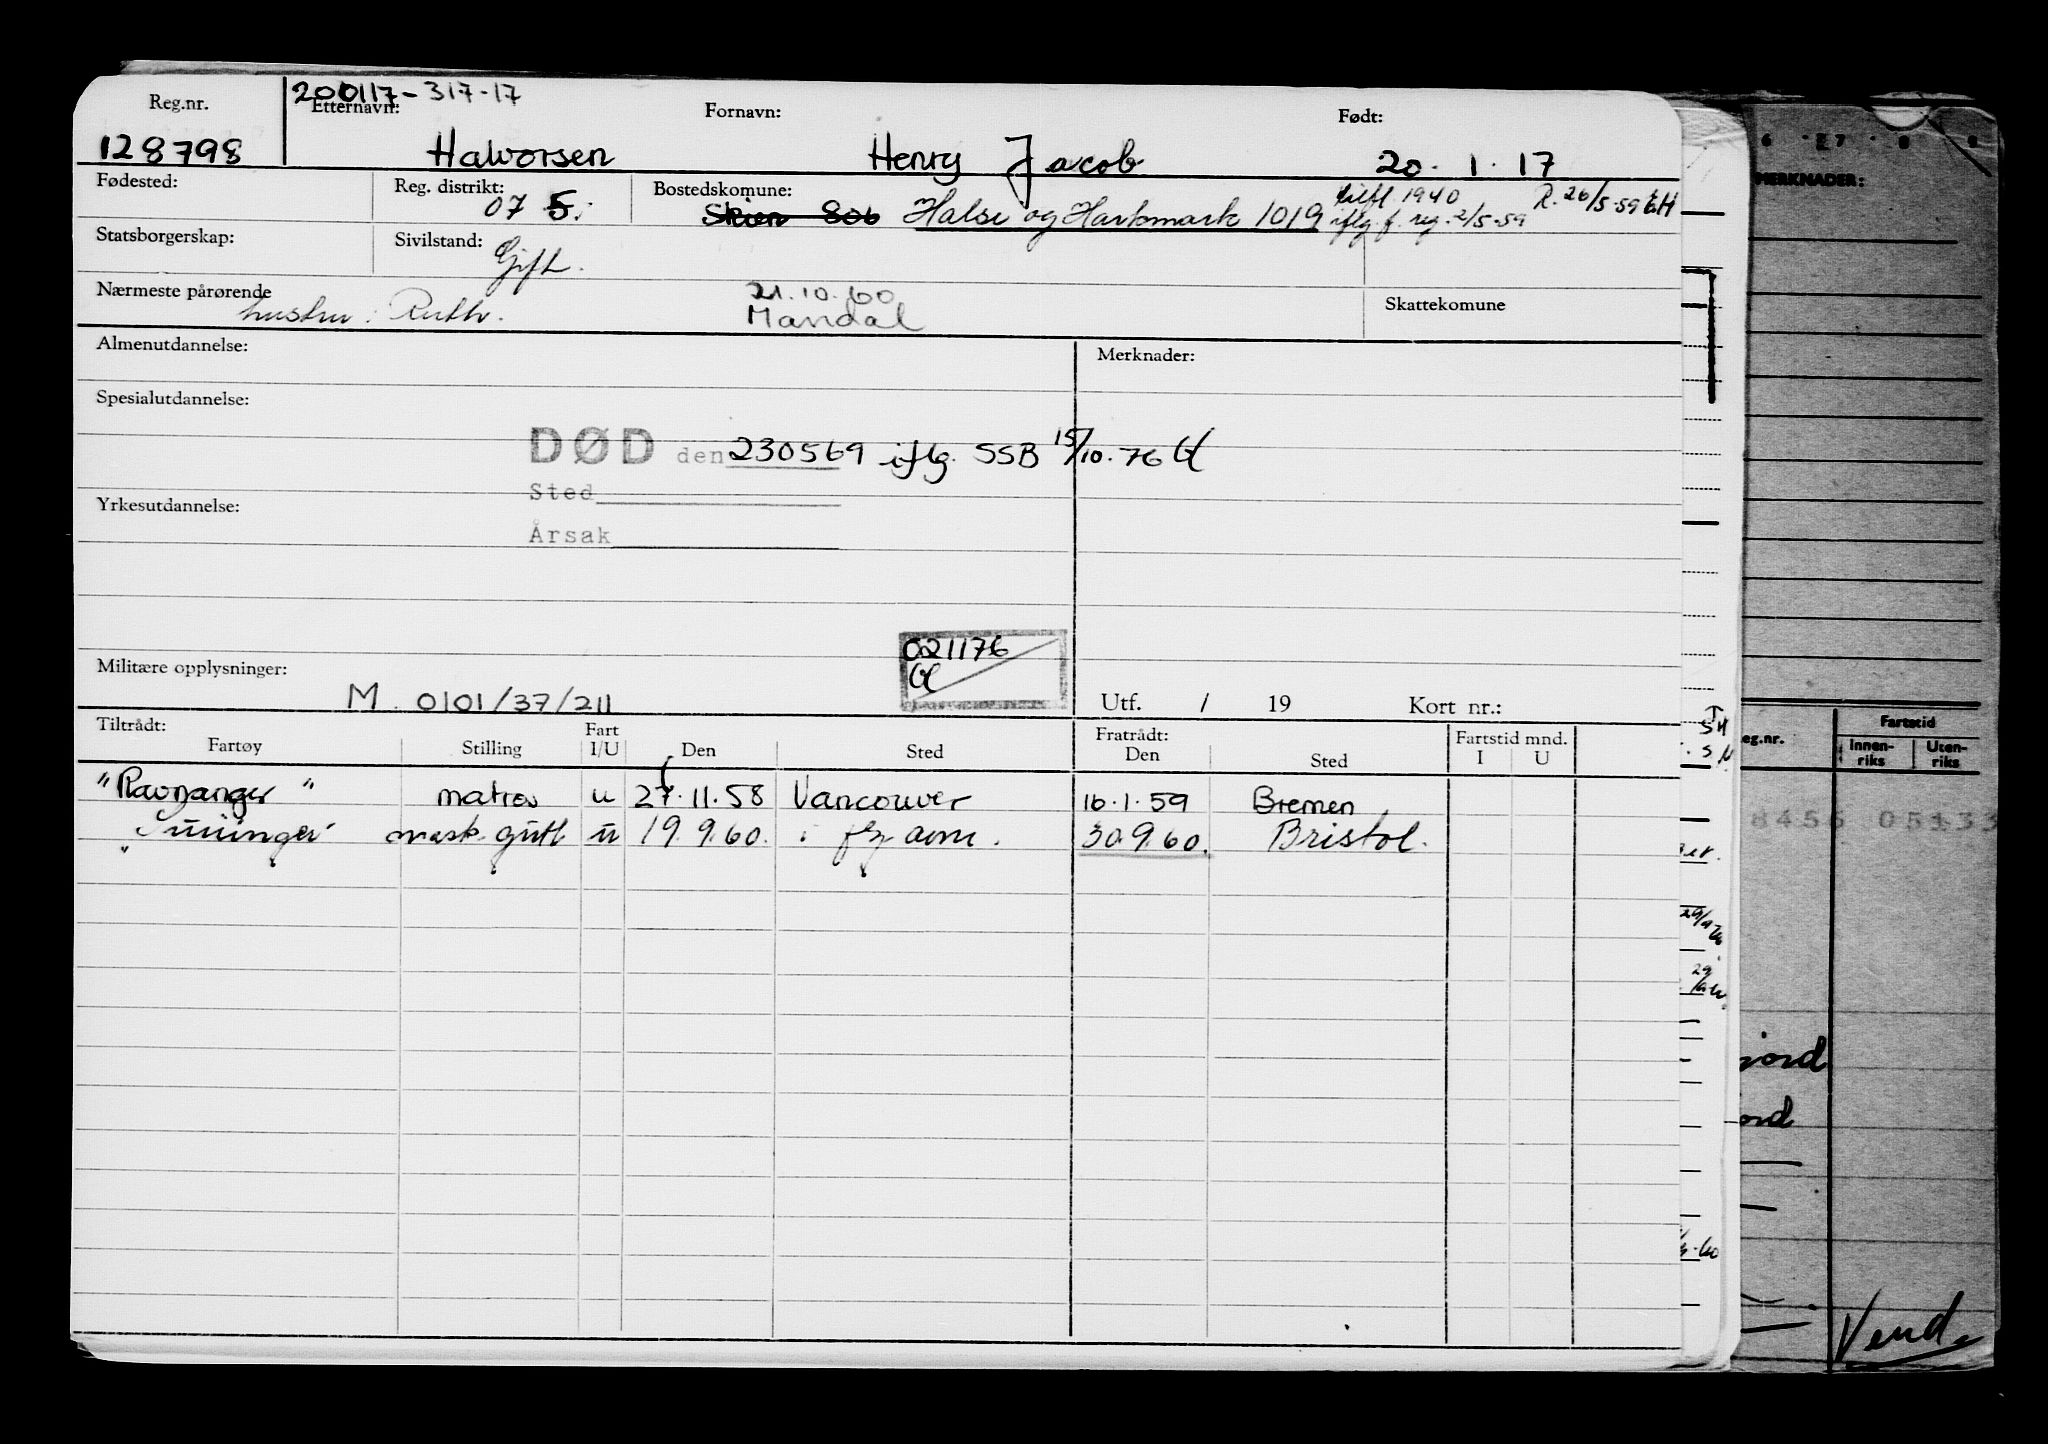 200117-317-17
Reg.nr. Etternavn: Fornavn: Født:
128798 Halvorsen Henry Jacob 20.1.17
Fødested: Reg. distrikt: 07 5. Bostedskomune: Skien 806 Halse og Harkmark 1019 tilfl. 1940 R. 26/5-59 EH
iflg. f. reg. 2/5-59
Statsborgerskap: Sivilstand: Gift.
Nærmeste pårørende hustru: Ruth. 21.10.60 Skattekomune
Mandal
Almenutdannelse: Merknader:
Spesialutdannelse:
DØD den 230569 iflg. SSB 15/10.76
Sted
Yrkesutdannelse:
Årsak
021176
Militære opplysninger: M. 0101/37/211
Utf. / 19 Kort nr.:
Tiltrådt: Fratrådt: Fartstid mnd.
Fartøy Stilling Fart I/U Den Sted Den Sted I U
"Ravnanger" matros u 27.11.58 Vancouver 16.1.59 Bremen
mask.gutt u 19.9.60. i flg avm. 30.9.60. Bristol.
MERKNADER:
Reg.nr. Fartstid
Innenriks Utenriks
8456 05133
Vend